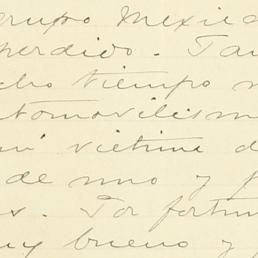 grupo Mexica
perdido. Tam
cho tiempo
utomovilism
victima d
de uno y p
s. Por fortun
uy bueno y